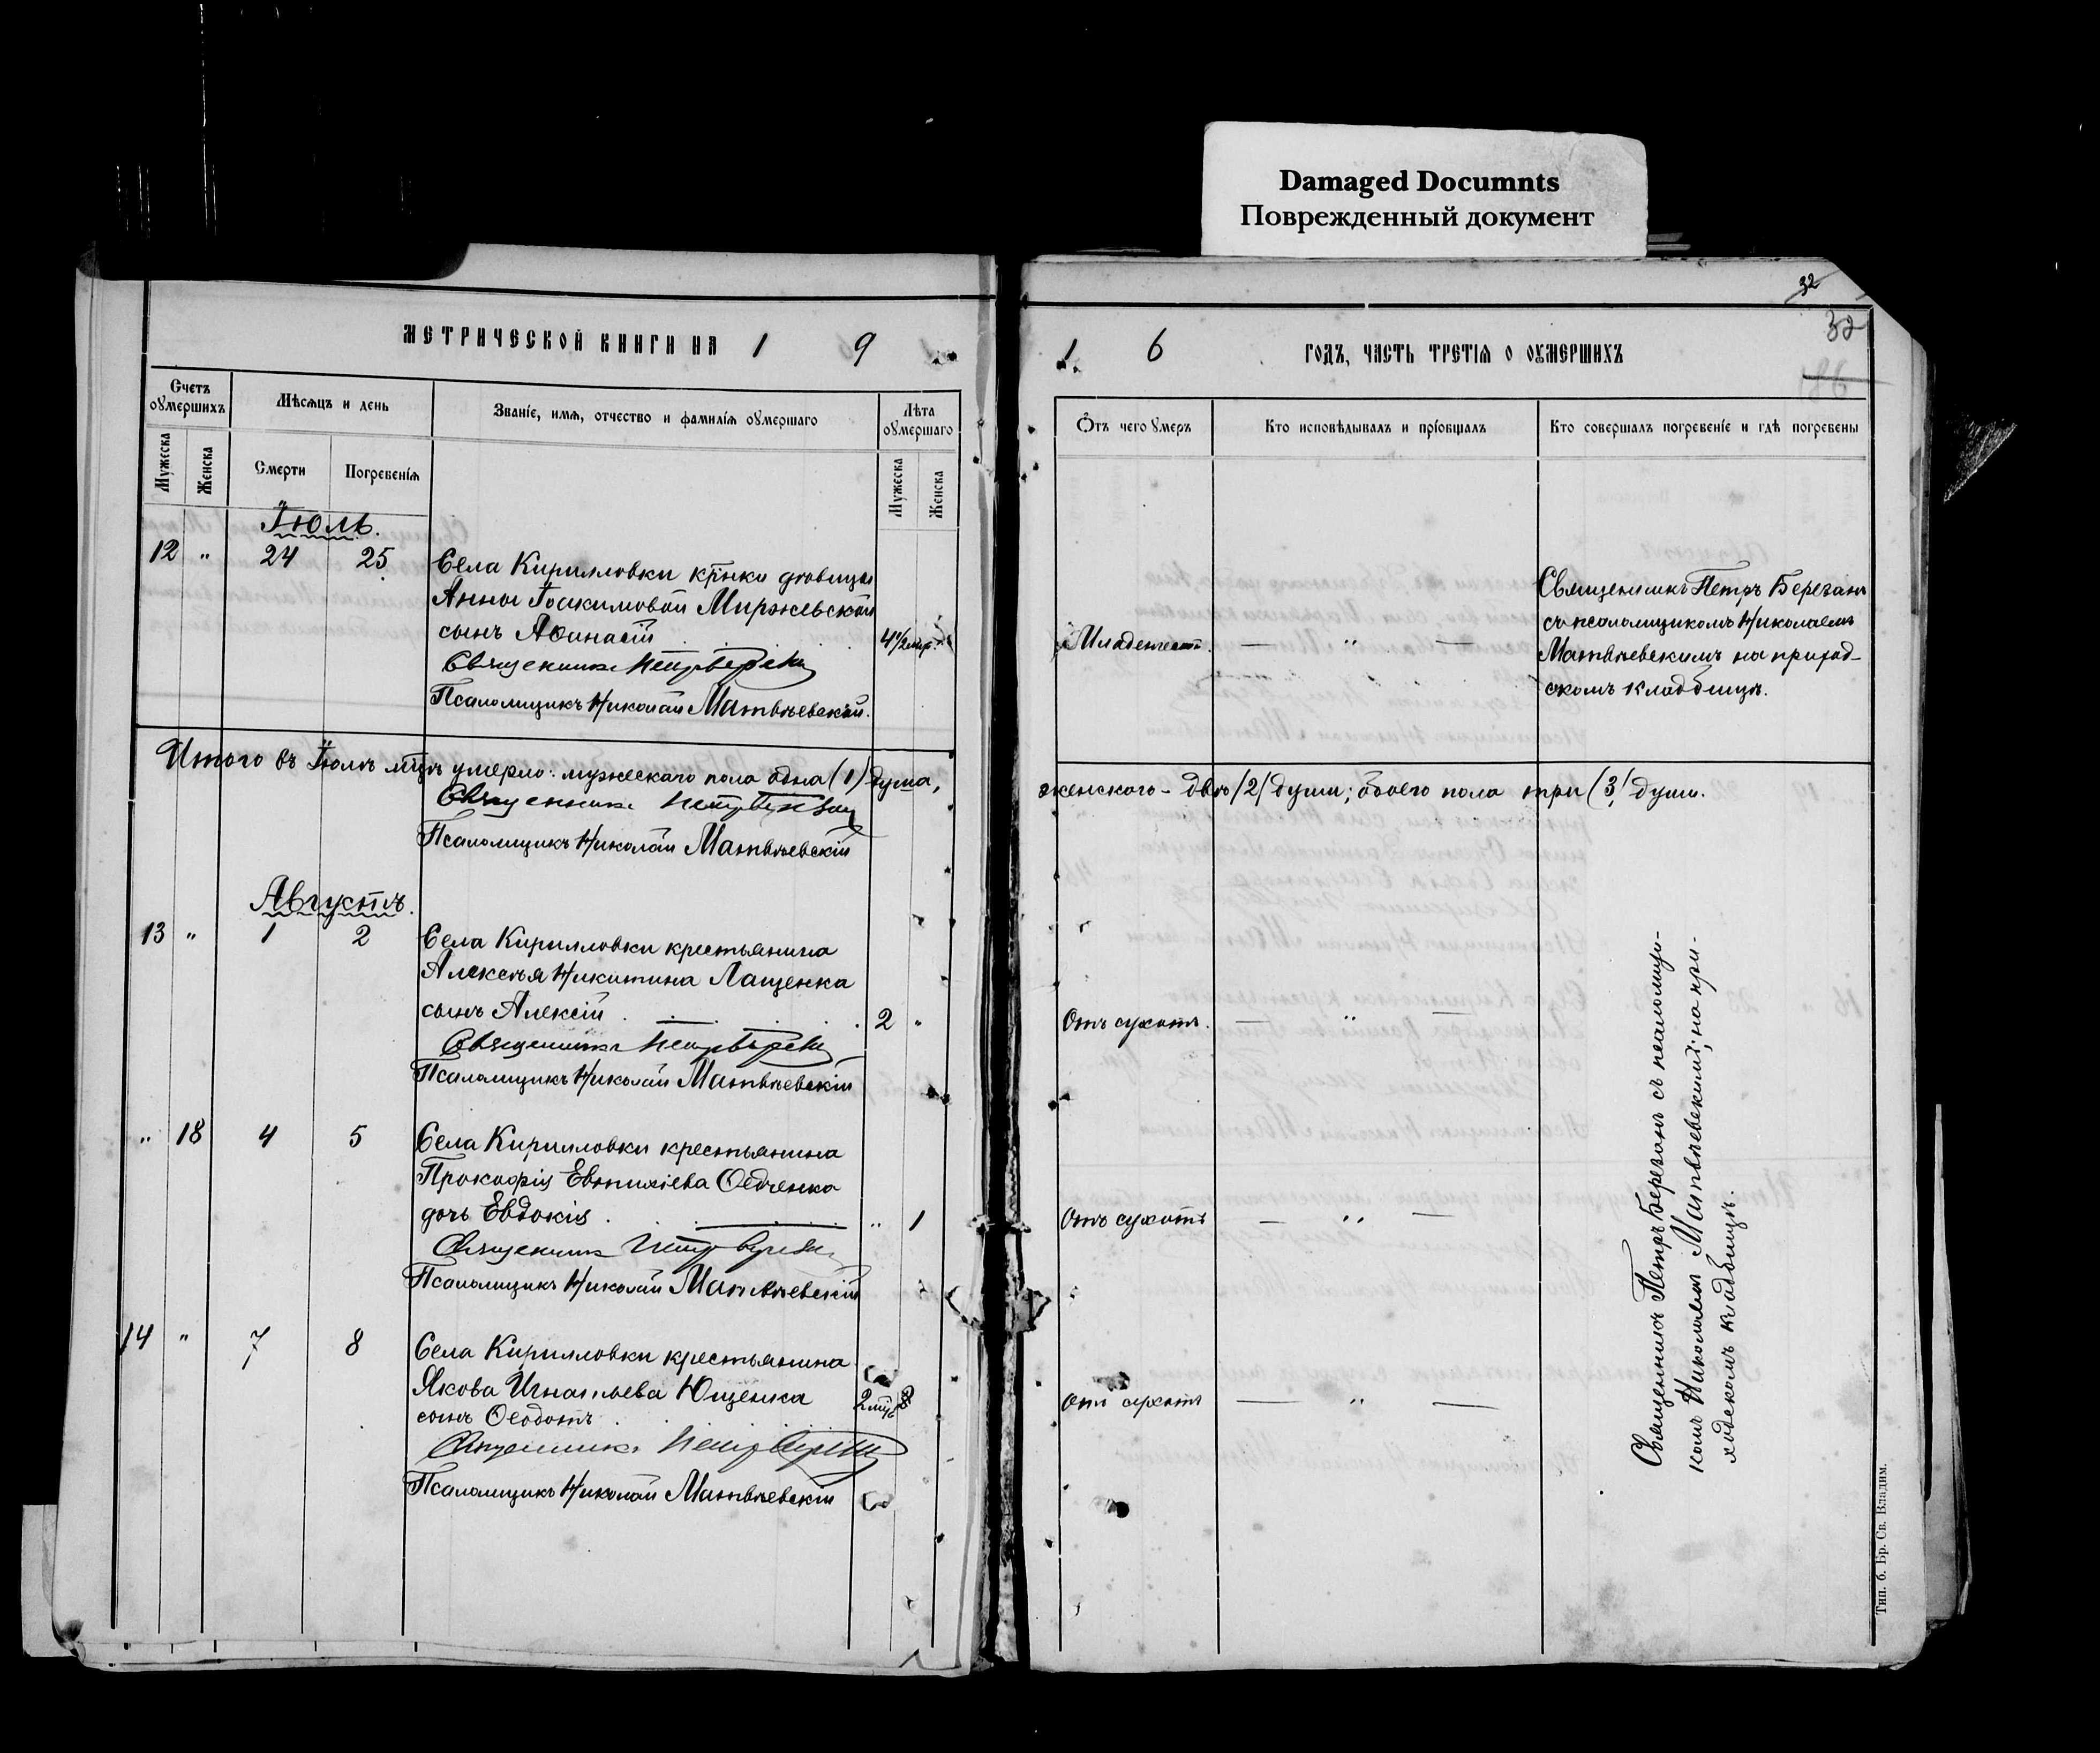 Damaged Documnts
Поврежденный документ
32
32
186
МЕТРИЧЕСКОЙ КНИГИ НА 1 9
1 6 ГОДЪ, ЧАСТЬ ТРЕТІЯ О ОУМЕРШИХЪ
Счетъ оумершихъ
Мѣсяцъ и день
Званіе, имя, отчество и фамилія оумершаго
Лѣта оумершаго
Мужеска
Женска
Смерти
Погребенія
Мужеска
Женска
Отъ чего умеръ
Кто исповѣдывалъ и пріобщалъ
Кто совершалъ погребеніе и гдѣ погребены
Іюль.
12 " 24 25 Села Кирилловки кр̃нки дѣвицы
Анны Іоакимовой Миржевской
сынъ Аѳанасій 4½ мр.
Священникъ Петръ
Псаломщикъ Николай Матвѣевскій.
Младенческ. — " —
Священникъ Петръ Березан
съ псаломщикомъ Николаемъ
Матвѣевскимъ на приход-
скомъ кладбищѣ.
Итого въ Іюлѣ мц̃ѣ умерло: мужескаго пола одна (1) душа,
женского - двѣ /2/ души; обоего пола три (3) души.
Священникъ Петръ
Псаломщикъ Николай Матвѣевскій
Августъ.
13 " 1 2 Села Кирилловки крестьянина
Алексѣя Никитина Лащенка
сынъ Алексій 2 "
Священникъ Петръ
Псаломщикъ Николай Матвѣевскій
Отъ сухотъ. — " —
" 18 4 5 Села Кирилловки крестьянина
Прокофія Евтихіева Ѳедченка
дочь Евдокія. " 1
Священникъ Петръ
Псаломщикъ Николай Матвѣевскій
Отъ сухотъ — " —
14 " 7 8 Села Кирилловки крестьянина
Якова Игнатьева Ющенка
сынъ Ѳеодотъ 2 мц̃
Священникъ Петръ
Псаломщикъ Николай Матвѣевскій
Отъ сухотъ — " —
Священникъ Петръ Березанъ съ псаломщи-
комъ Николаемъ Матвѣевскимъ; на при-
ходскомъ кладбищѣ.
Тип. б. Бр. Св. Владим.